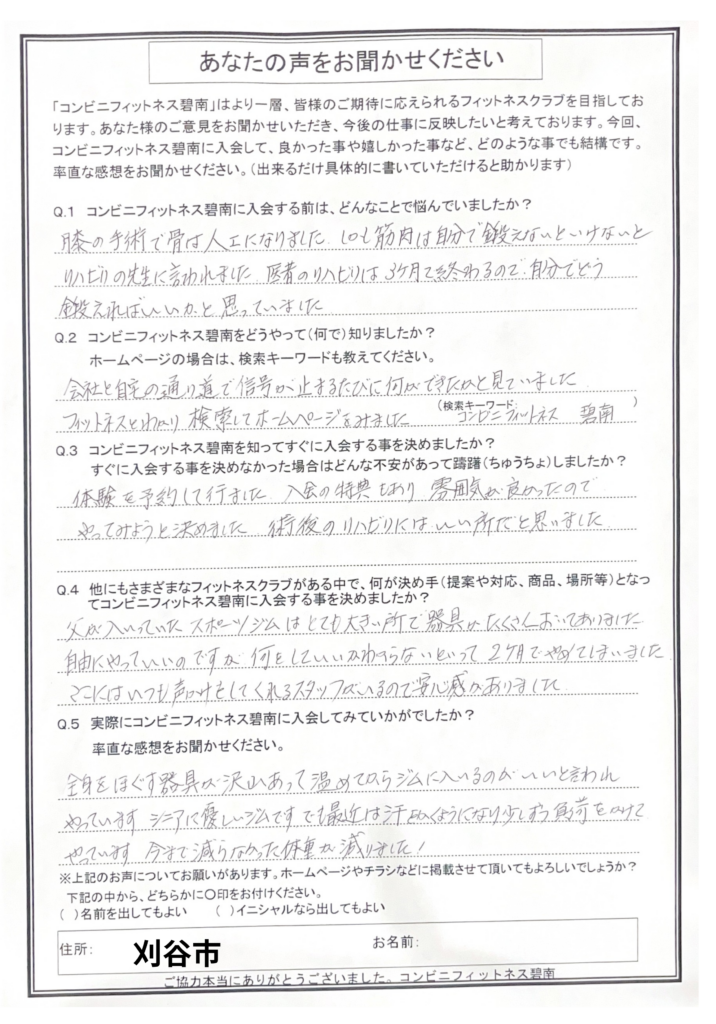 あなたの声をお聞かせください
「コンビニフィットネス碧南」はより一層、皆様のご期待に応えられるフィットネスクラブを目指してお
ります。あなた様のご意見をお聞かせいただき、今後の仕事に反映したいと考えております。今回、
コンビニフィットネス碧南に入会して、良かった事や嬉しかった事など、どのような事でも結構です。
率直な感想をお聞かせください。（出来るだけ具体的に書いていただけると助かります）
Q.1 コンビニフィットネス碧南に入会する前は、どんなことで悩んでいましたか？
膝の手術で骨は人工になりました しかし筋肉は自分で鍛えないといけないと
リハビリの先生に言われました 医者のリハビリは3ケ月で終わるので自分でどう
鍛えればいいかと思っていました
Q.2 コンビニフィットネス碧南をどうやって（何で）知りましたか？
ホームページの場合は、検索キーワードも教えてください。
会社と自宅の通り道で信号が止まるたびに何ができたかと見ていました
フィットネスとわかり検索してホームページをみました （検索キーワード: コンビニフィットネス 碧南 ）
Q.3 コンビニフィットネス碧南を知ってすぐに入会する事を決めましたか？
すぐに入会する事を決めなかった場合はどんな不安があって躊躇（ちゅうちょ）しましたか？
体験を予約して行ました 入会の特典もあり 雰囲気が良かったので
やってみようと決めました 術後のリハビリにはいい所だと思いました
Q.4 他にもさまざまなフィットネスクラブがある中で、何が決め手（提案や対応、商品、場所等）となっ
てコンビニフィットネス碧南に入会する事を決めましたか？
父が入っていたスポーツジムはとても大きい所で器具がたくさんおいてありました
自由にやっていいのですが何をしていいかわからないといって2ケ月でやめてしまいました
ここにはいつも声かけをしてくれるスタッフがいるので安心感がありました
Q.5 実際にコンビニフィットネス碧南に入会してみていかがでしたか？
率直な感想をお聞かせください。
全身をほぐす器具が沢山あって温めてからジムに入いるのがいいと言われ
やっています シニアに優しいジムです でも最近は汗をかくようになり少しずつ負荷をかけて
やっています 今まで減らなかった体重が減りました！
※上記のお声についてお願いがあります。ホームページやチラシなどに掲載させて頂いてもよろしいでしょうか？
下記の中から、どちらかに〇印をお付けください。
（ ）名前を出してもよい （ ）イニシャルなら出してもよい
住所: 刈谷市 お名前:
ご協力本当にありがとうございました。コンビニフィットネス碧南